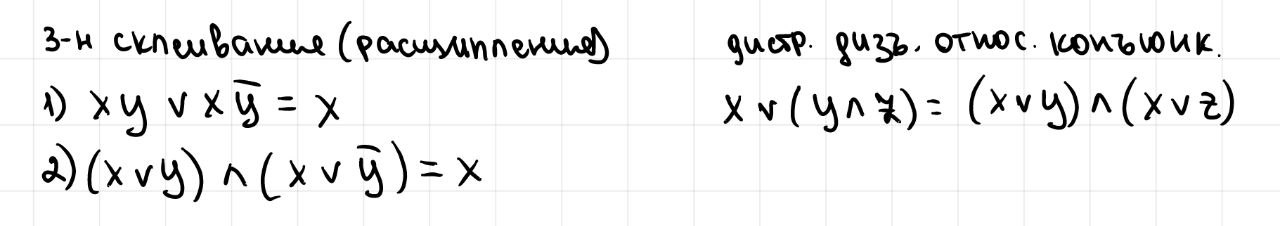 З-н склеивание (расщипление)
1) xy ∨ xȳ = x
2) (x∨y) ∧ (x ∨ ȳ) = x
дистр. дизъ. относ. конъюнк.
x ∨ (y ∧ z) = (x∨y) ∧ (x∨z)